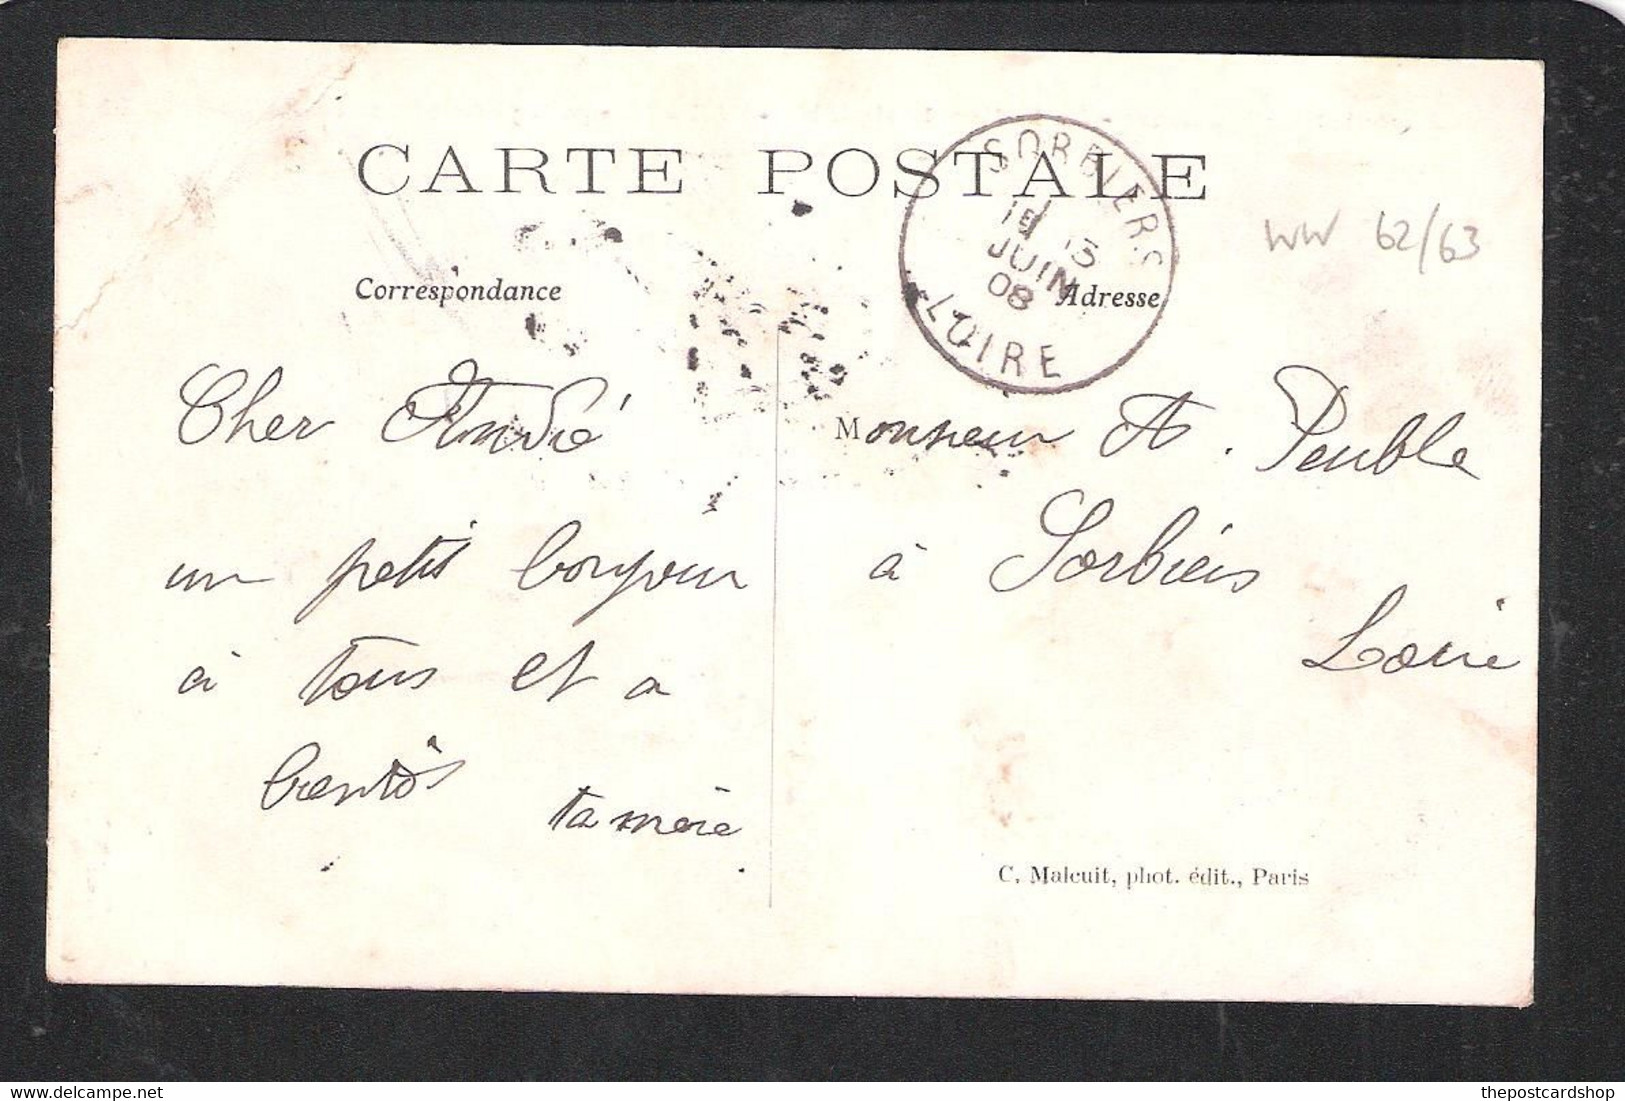 CARTE POSTALE
SORBIERS
15
JUIN
08
LOIRE
WW 62/63
Correspondance
Adresse
Cher André
un petit bonjour
à tous et a
bientôt
ta mère
Monsieur A. Peuble
à Sorbiers
Loire
C. Malcuit, phot. édit., Paris
thepostcardshop